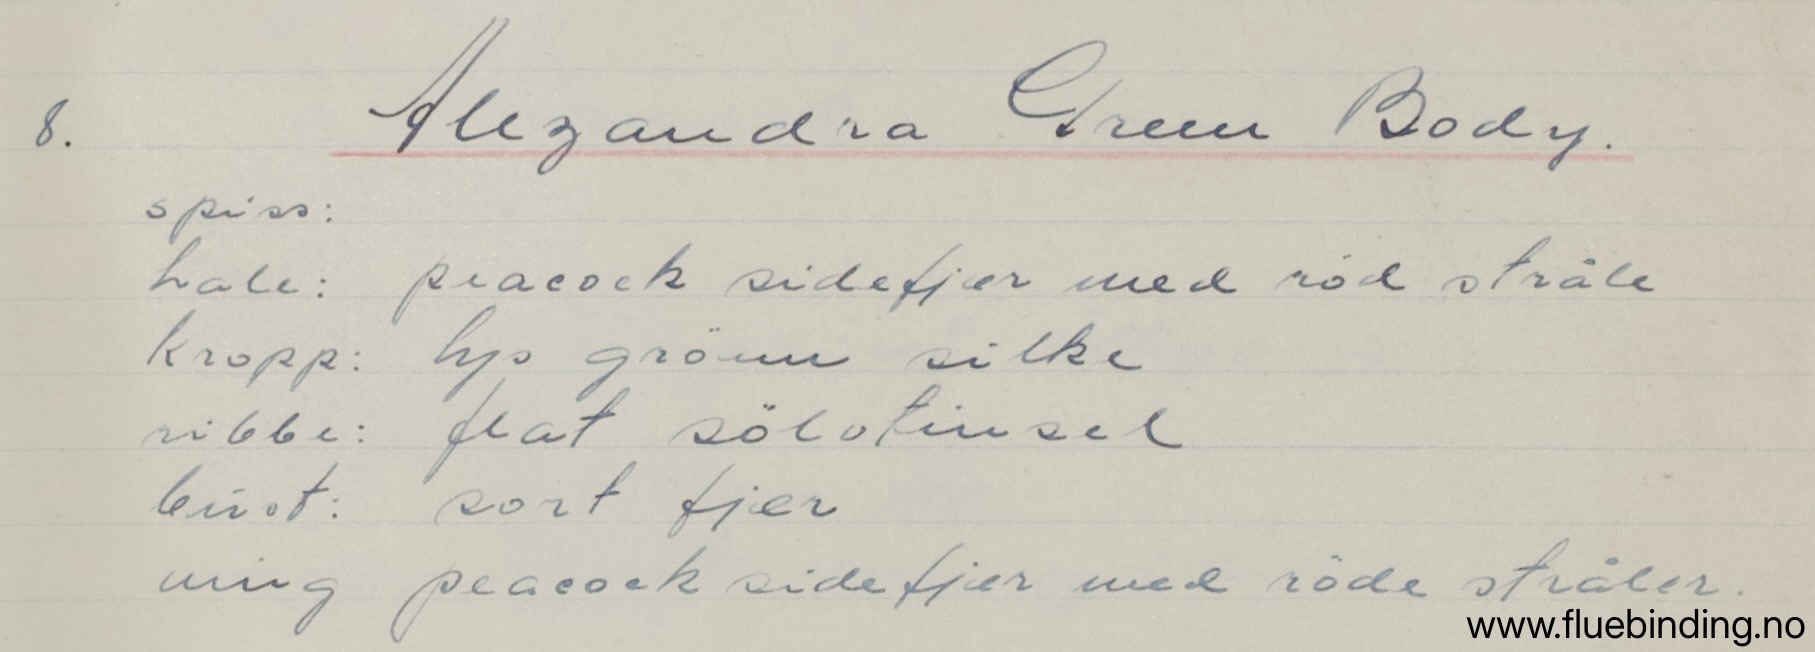 8. Alexandra Green Body.
spiss:
hale: peacock sidefjær med röd stråle
kropp: lys grönn silke
ribbe: flat sölvtinsel
büst: sort fjær
wing peacock sidefjær med röde stråler.
www.fluebinding.no